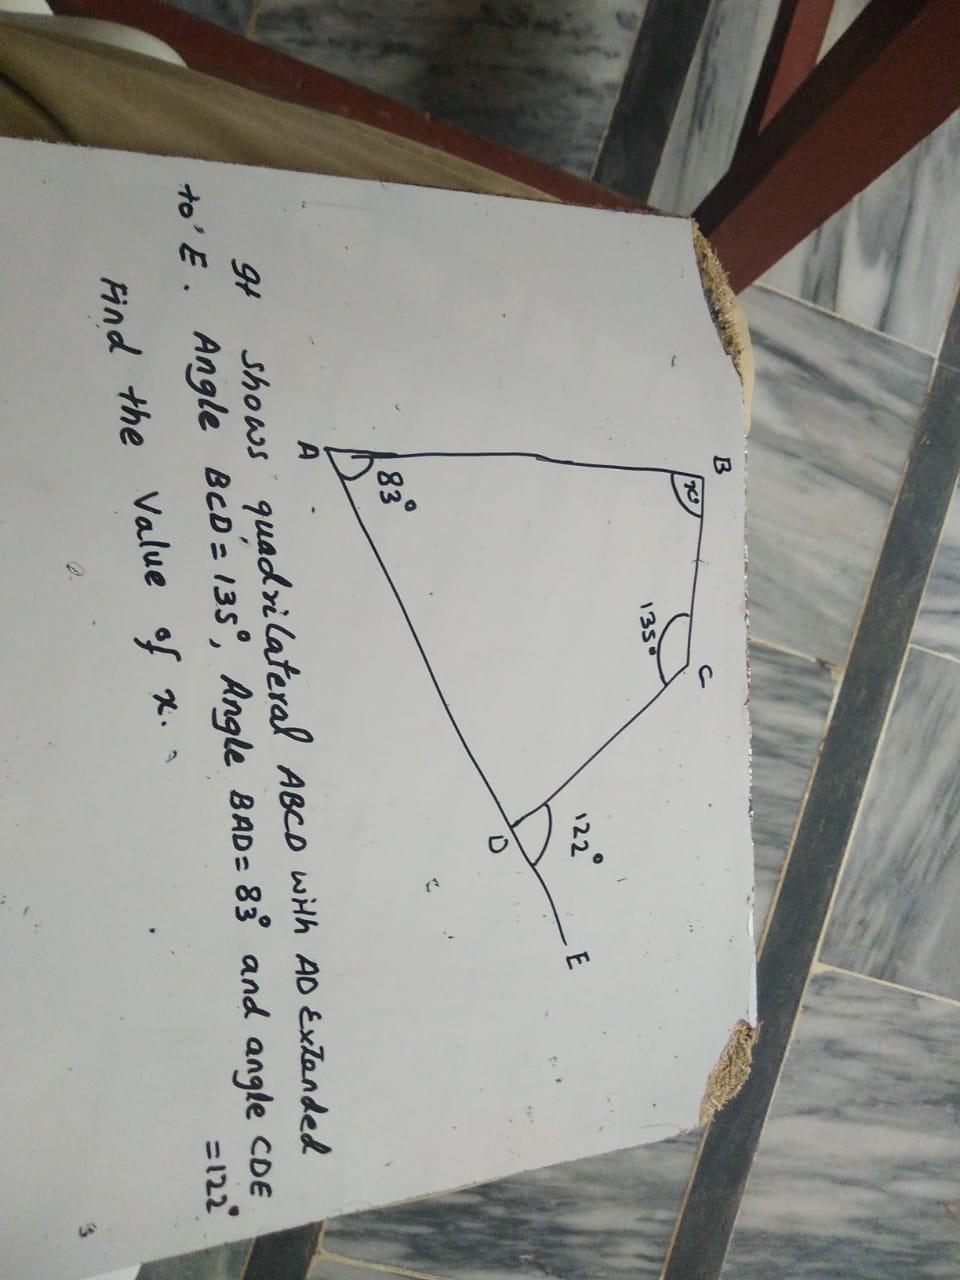 B
x°
C
135°
122°
E
83°
A
D
It shows quadrilateral ABCD with AD Extanded
to' E. Angle BCD = 135°, Angle BAD = 83° and angle CDE
= 122°
Find the value of x.